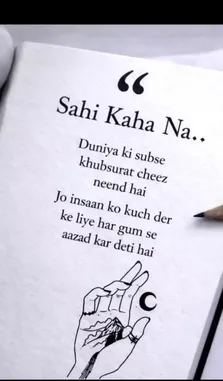 “
Sahi Kaha Na..
Duniya ki subse
khubsurat cheez
neend hai
Jo insaan ko kuch der
ke liye har gum se
aazad kar deti hai